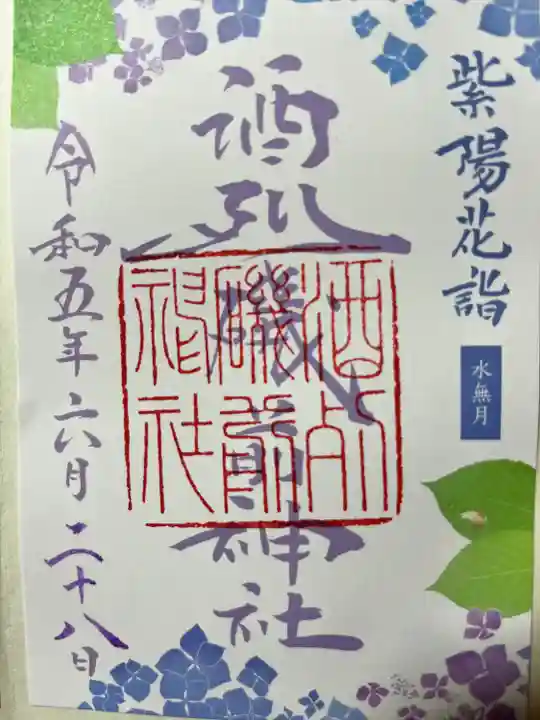 紫陽花詣
水無月
酒列磯前神社
酒列
磯前
神社
令和五年六月二十八日